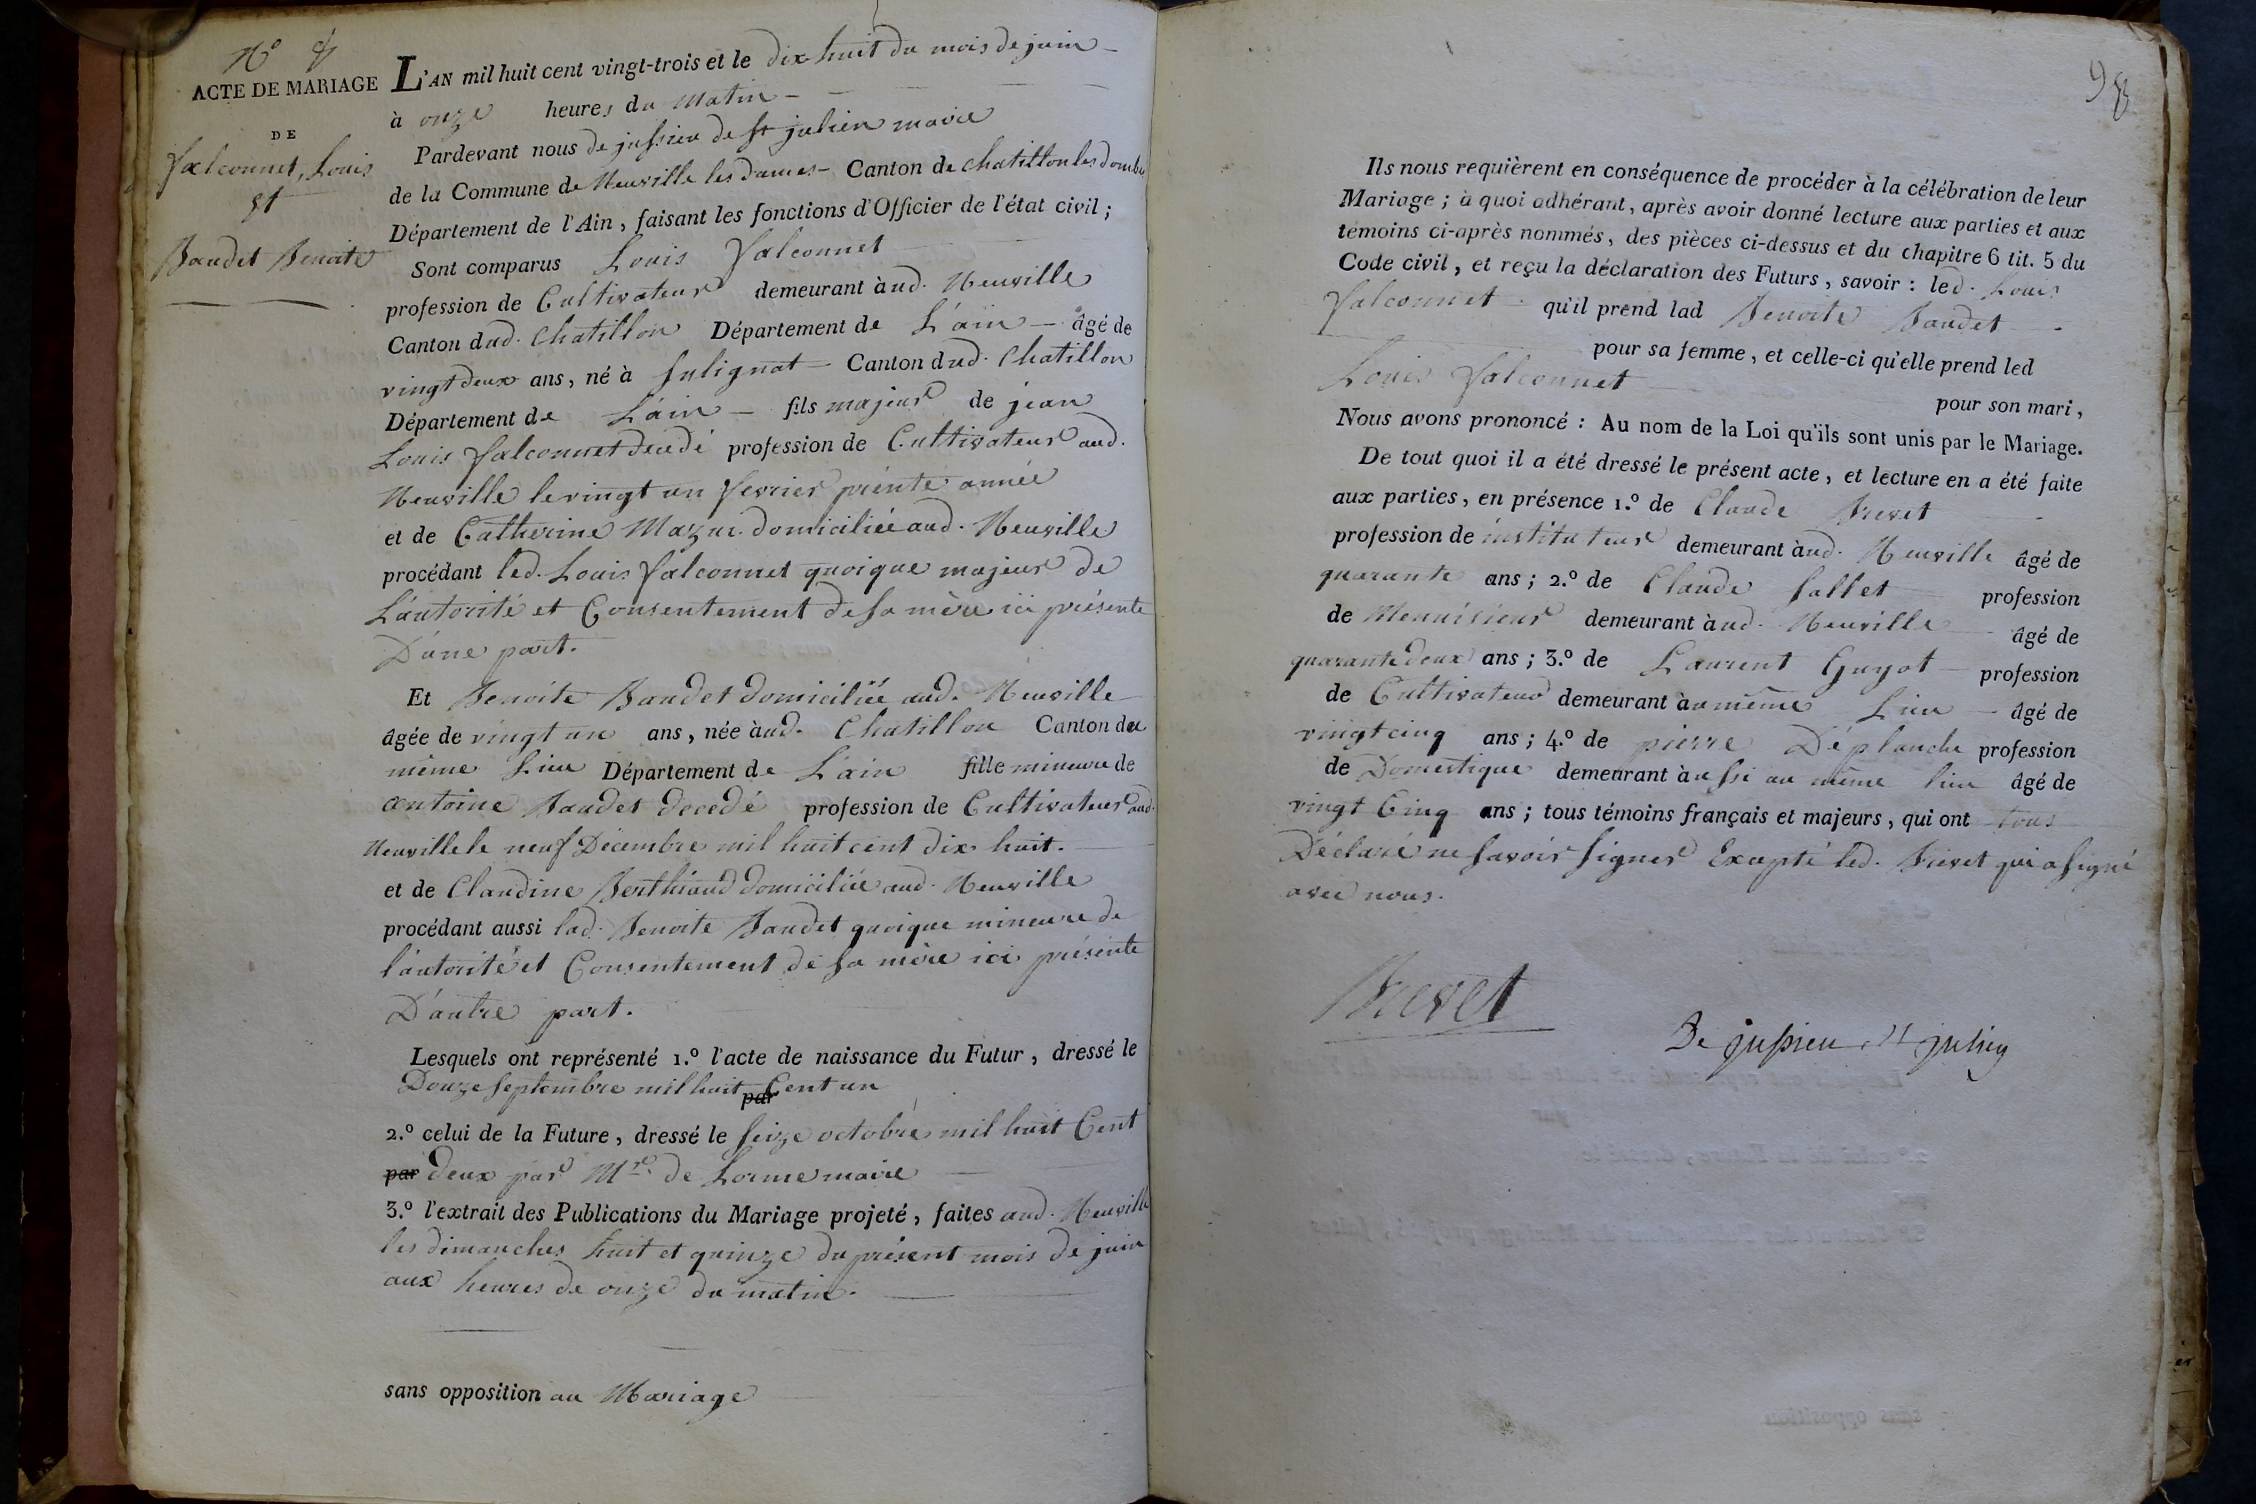 N° 8
ACTE DE MARIAGE
DE
falconnet, Louis
et
Baudet Benoite
L'AN mil huit cent vingt-trois et le dix huit du mois de juin
à onze heures du Matin
Pardevant nous de jussieu de st julien maire
de la Commune de Neuville les dames Canton de chatillon les dombe
Département de l'Ain, faisant les fonctions d'Officier de l'état civil ;
Sont comparus Louis falconnet
profession de Cultivateur demeurant àud. Neuville
Canton dud. Chatillon Département de L'ain âgé de
vingt deux ans, né à Sulignat Canton dud. Chatillon
Département de L'ain fils majeur de jean
Louis falconnet decedé profession de Cultivateur aud.
Neuville le vingt un fevrier pnte année
et de Catherine Mazui domiciliée aud. Neuville
procédant led. Louis falconnet quoique majeur de
L'autorité et Consentement de sa mère ici présente
D'une part.
Et Benoite Baudet domiciliée aud. Neuville
âgée de vingt un ans, née àud. Chatillon Canton du
même Lieu Département de L'ain fille mineure de
antoine Baudet decedé profession de Cultivateur aud.
Neuville le neuf Décembre mil huit cent dix huit.
et de Claudine Berthiaud domiciliée aud. Neuville
procédant aussi lad. Benoite Baudet quoique mineure de
l'autorité et Consentement de sa mère ici présente
D'autre part.
Lesquels ont représenté 1.° l'acte de naissance du Futur, dressé le
Douze septembre mil huit par Cent un
2.° celui de la Future, dressé le seize octobre mil huit Cent
par deux par Mre. de Lorme maire
3.° l'extrait des Publications du Mariage projeté, faites aud. Neuville
les dimanches huit et quinze du présent mois de juin
aux heures de onze du matin.
sans opposition au Mariage
98
Ils nous requièrent en conséquence de procéder à la célébration de leur
Mariage ; à quoi adhérant, après avoir donné lecture aux parties et aux
témoins ci-après nommés, des pièces ci-dessus et du chapitre 6 tit. 5 du
Code civil, et reçu la déclaration des Futurs, savoir : led. Louis
falconnet qu'il prend lad Benoite Baudet
pour sa femme, et celle-ci qu'elle prend led
Louis falconnet
pour son mari,
Nous avons prononcé : Au nom de la Loi qu'ils sont unis par le Mariage.
De tout quoi il a été dressé le présent acte, et lecture en a été faite
aux parties, en présence 1.° de Claude Brevet
profession de instituteur demeurant àud. Neuville âgé de
quarante ans ; 2.° de Claude Sallet profession
de Menuisieur demeurant àud. Neuville âgé de
quarante deux ans ; 3.° de Laurent Guyot profession
de Cultivateur demeurant àu même Lieu âgé de
vingt cinq ans ; 4.° de pierre Déplanche profession
de Domestique demeurant àussi au même lieu âgé de
vingt Cinq ans ; tous témoins français et majeurs, qui ont tous
Déclaré ne savoir signer Excepté led. Brevet qui a signé
avec nous.
Brevet
De jussieu st julien